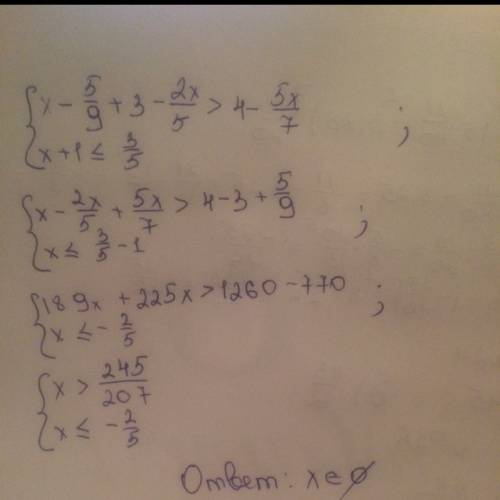 { x - 5/9 + 3 - 2x/5 > 4 - 5x/7 ;
x + 1 ≤ 3/5
{ x - 2x/5 + 5x/7 > 4 - 3 + 5/9 ;
x ≤ 3/5 - 1
{ 189x + 225x > 1260 - 770 ;
x ≤ - 2/5
{ x > 245/207
x ≤ - 2/5
Ответ: x ∈ ∅